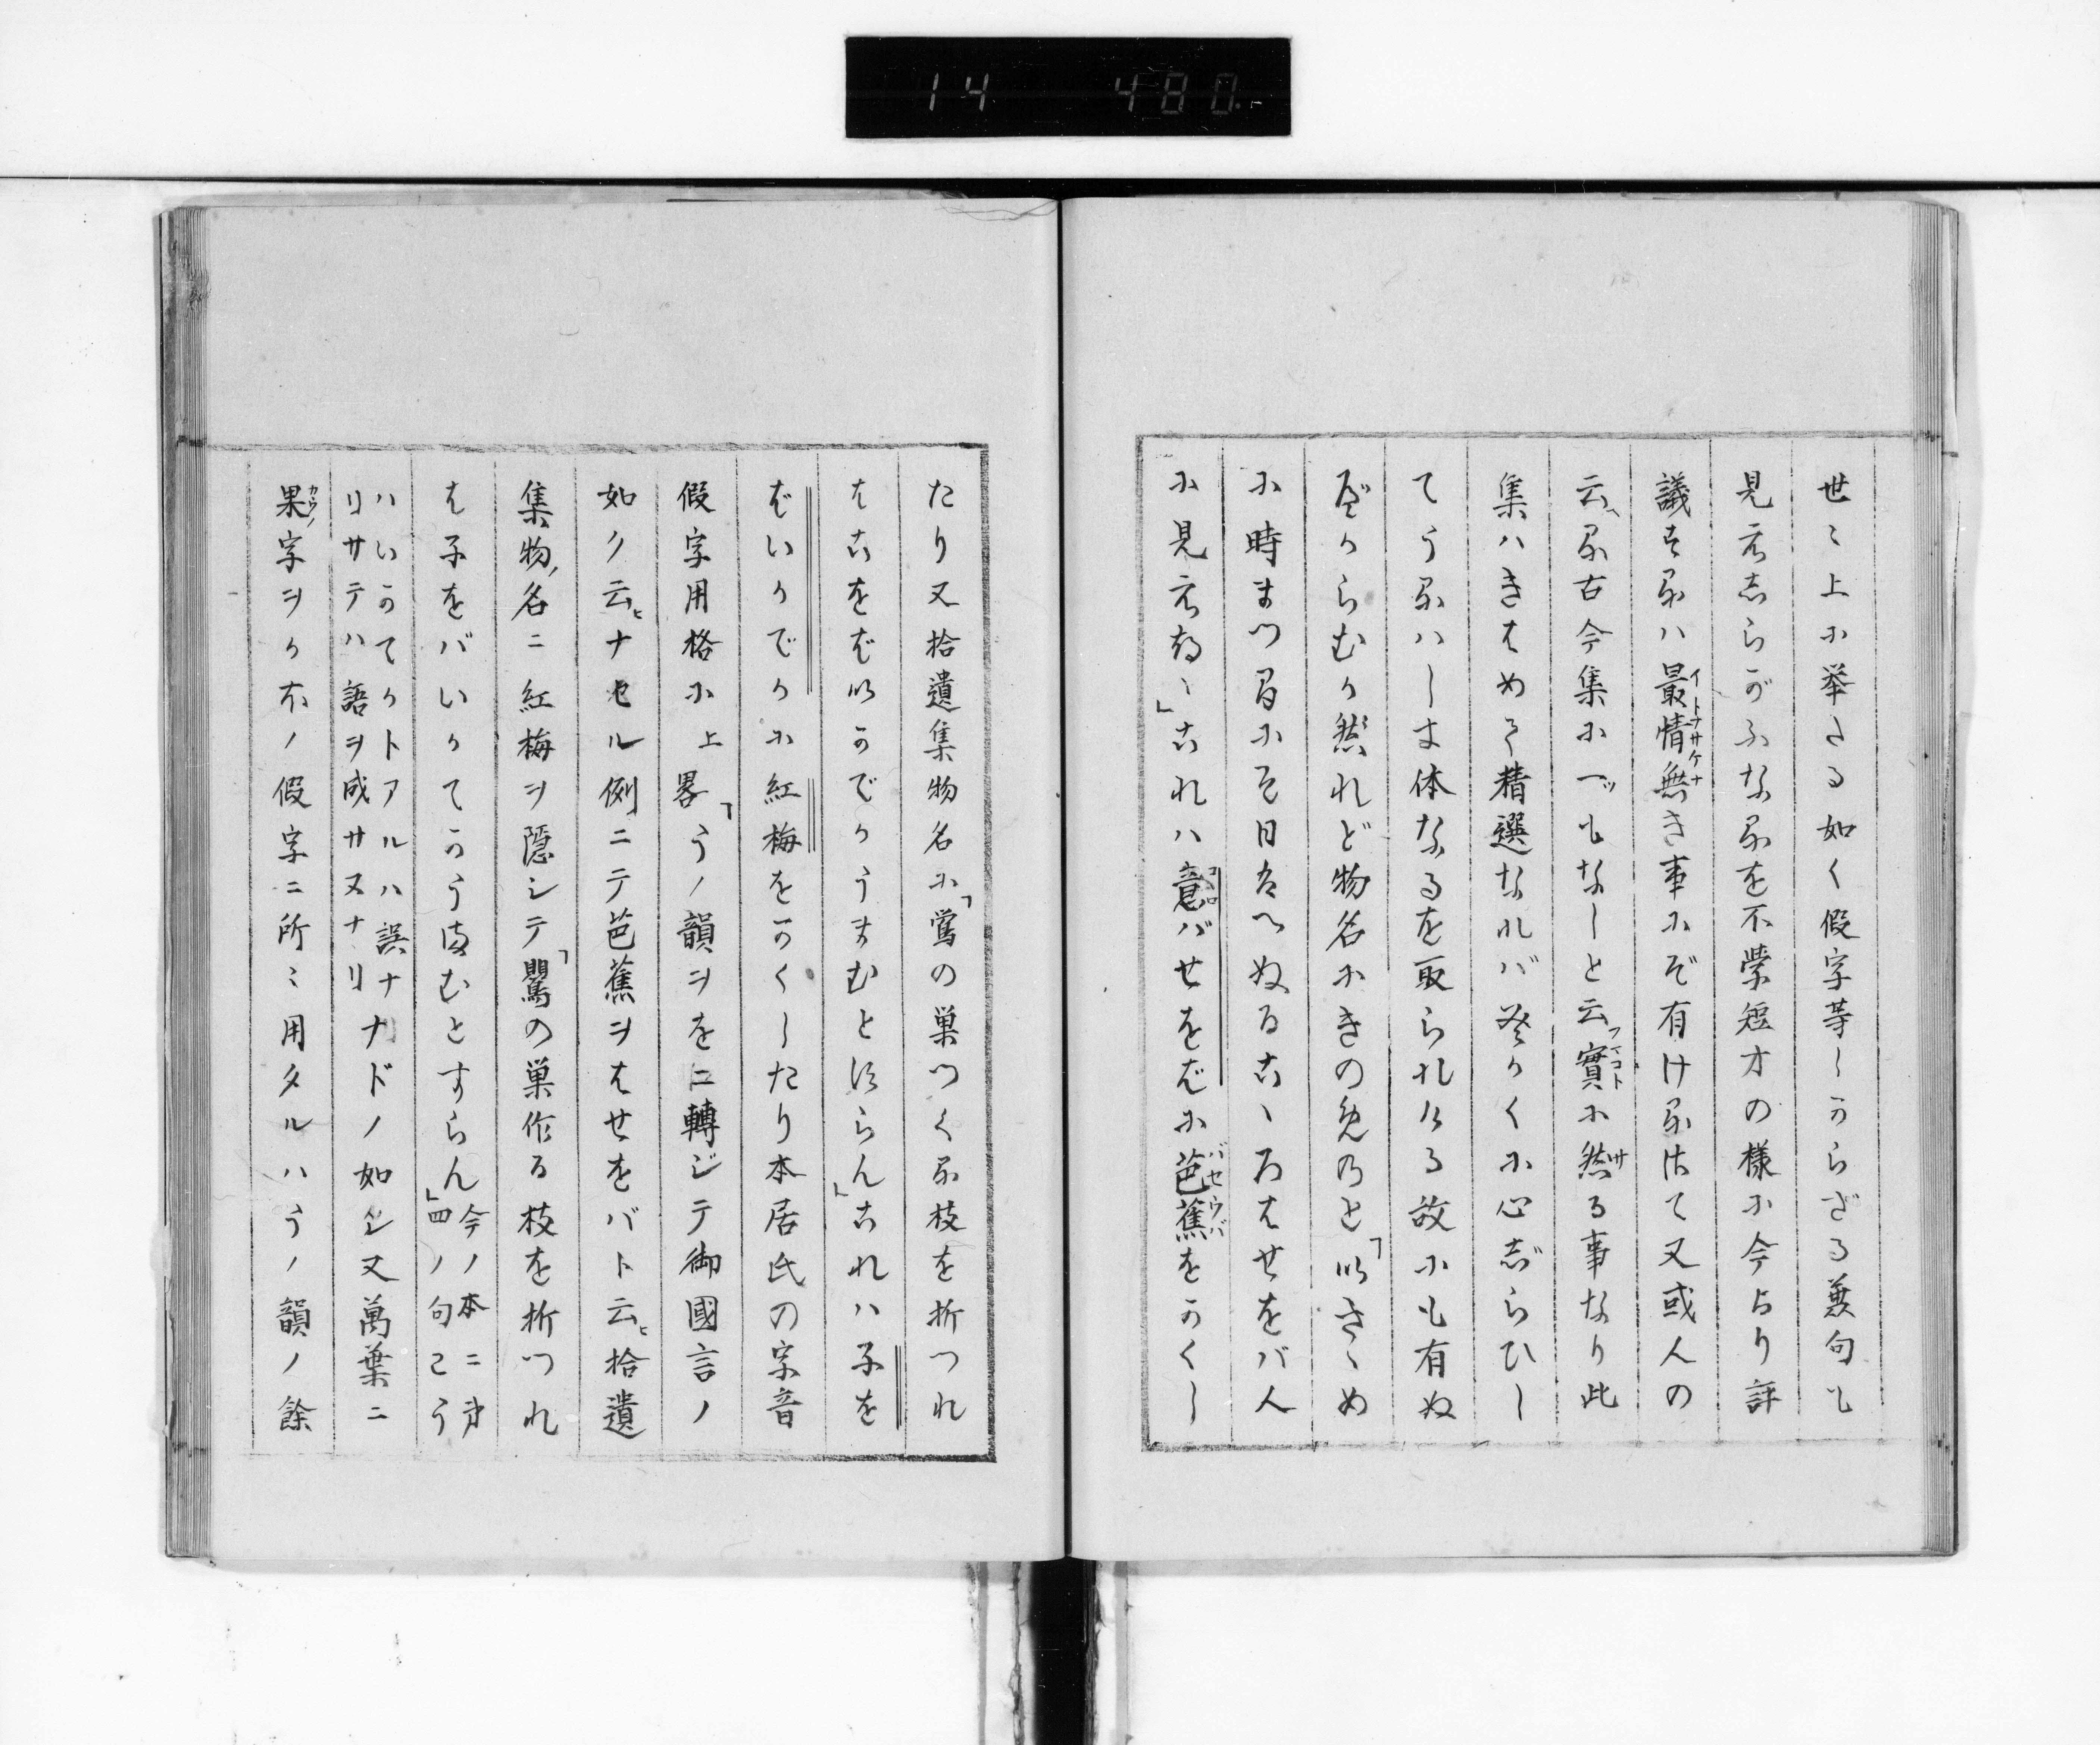 14 480
世〻上に挙たる如く假字等しからざる兼句も
見えしらがふなるを不学短才の様に今より評
議するは最情無き事にぞ有けるはて又或人の
云へる古今集に一ツもなしと云フ實に然る事なり此
集はきはめて精選なれバ然かくに心しらひし
てうるはしき体なるを取られける故にも有ぬ
べからむか然れど物名にきの免乃と「いさゝめ
に時まつ間にぞ日はへぬるこゝろばせをバ人
に見えむ」これは意バせをばに芭蕉をかくし
たり又拾遺集物名に「鶯の巣つくる枝を折つれ
はこをばいかでかうまむとすらん」これは子を
ばいかでかに紅梅をかくしたり本居氏の字音
假字用格に上畧「うノ韻ヲをニ轉ジテ御國言ノ
如ク云ヒナセル例ニテ芭蕉ヲはせをバト云ヒ拾遺
集物ノ名ニ紅梅ヲ隠シテ「鶯の巣作る枝を折つれ
は子をバいかてかうまむとすらん」今ノ本ニ第
四ノ句こう
ハいかてかトアルハ誤ナ
リサテハ語ヲ成サヌナリ
ナドノ如シ又萬葉ニ
果ノ字ヲかホノ假字ニ所〻用タルハうノ韻ノ餘